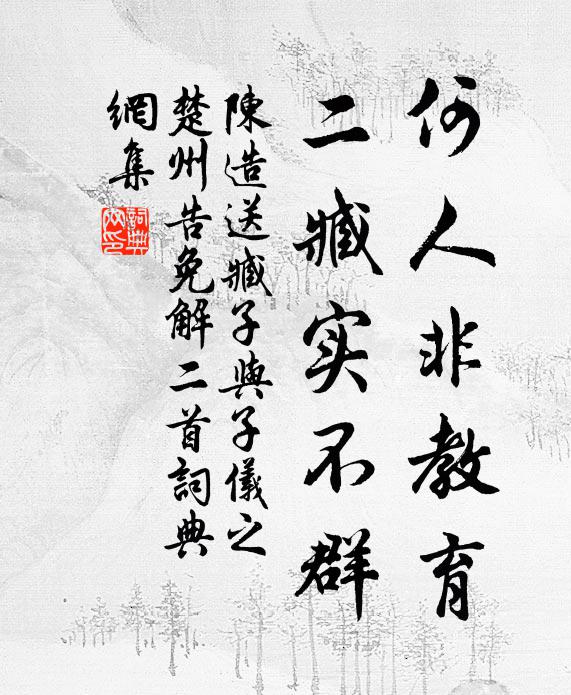 何人非教育
二臧实不群
陳造送臧子與子儀之
楚州告免解二首詞典
網集
詞典網印